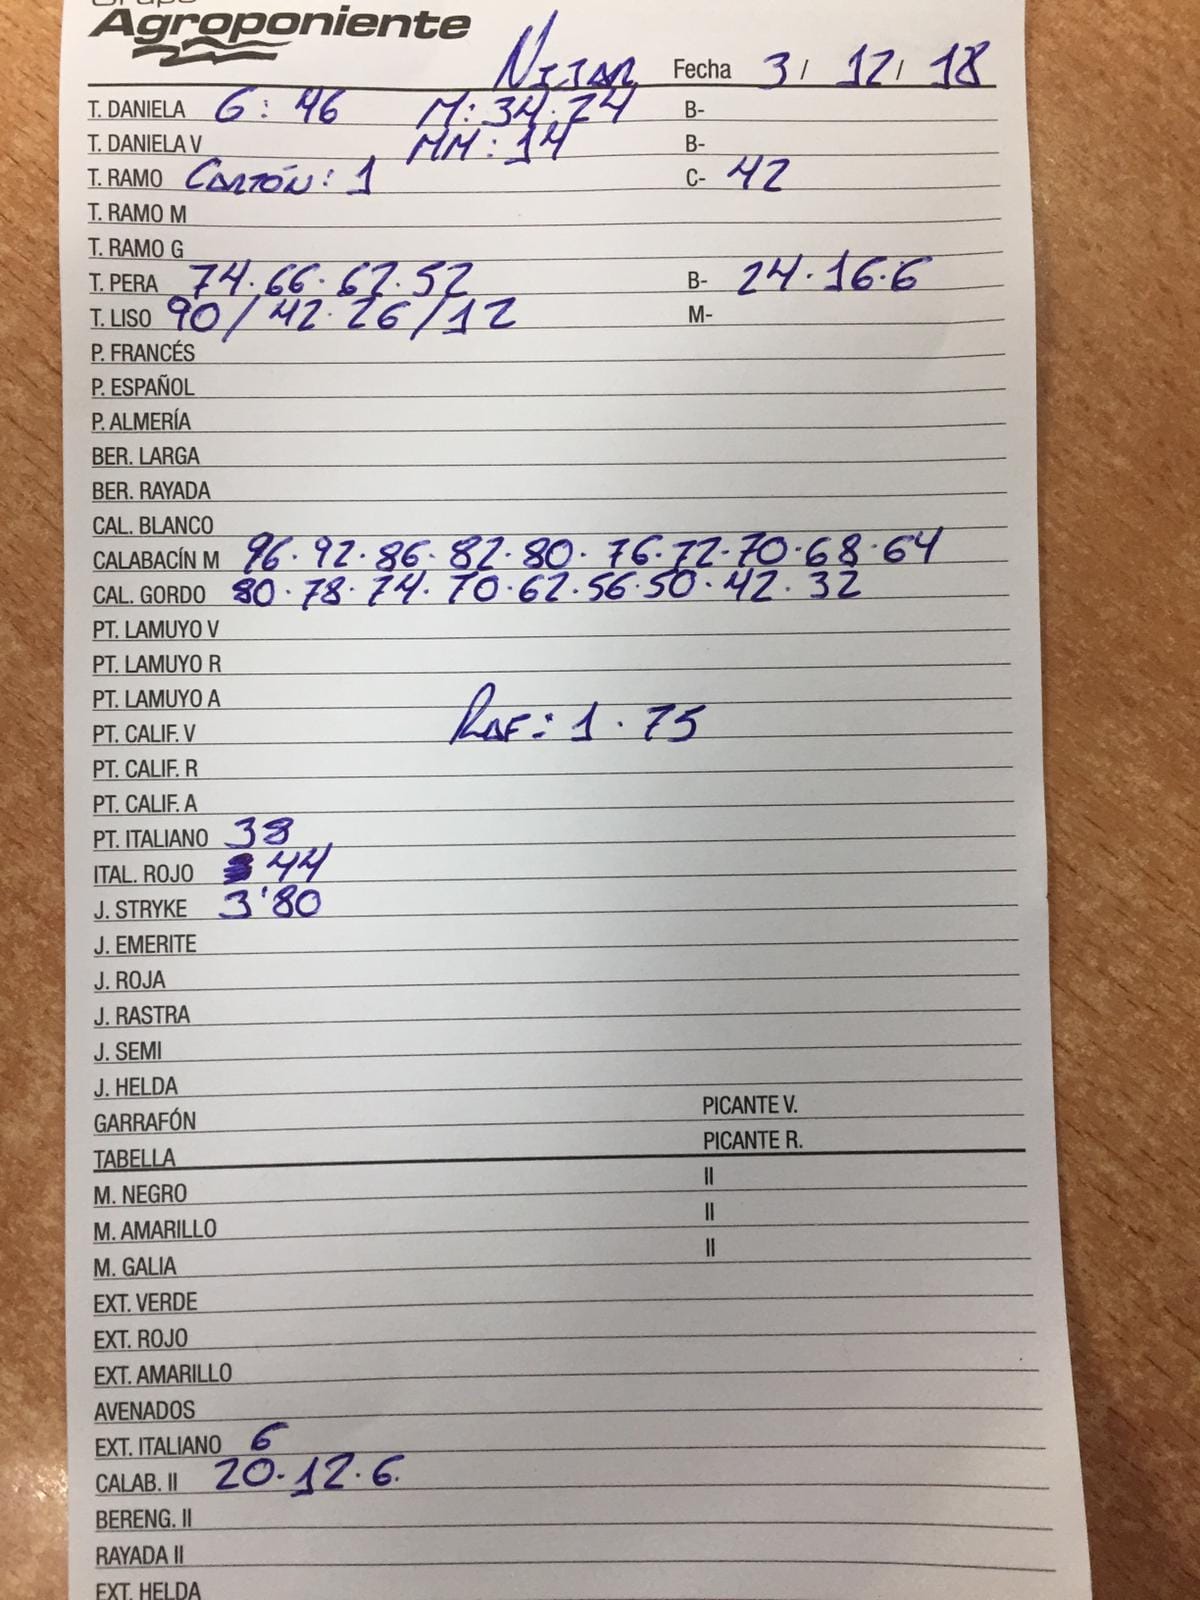 Grupo
Agroponiente
Nijar Fecha 3/ 12/ 18
T. DANIELA G: 46 M: 34.74 B-
T. DANIELA V MM: 14 B-
T. RAMO CARTÓN: 1 C- 42
T. RAMO M
T. RAMO G
T. PERA 74.66.62.52 B- 24.16.6
T. LISO 90/42.26/12 M-
P. FRANCÉS
P. ESPAÑOL
P. ALMERÍA
BER. LARGA
BER. RAYADA
CAL. BLANCO
CALABACÍN M 96.92.86.82.80.76.72.70.68.64
CAL. GORDO 80.78.74.70.62.56.50.42.32
PT. LAMUYO V
PT. LAMUYO R
PT. LAMUYO A
PT. CALIF. V RAF: 1.75
PT. CALIF. R
PT. CALIF. A
PT. ITALIANO 38
ITAL. ROJO 44
J. STRYKE 3'80
J. EMERITE
J. ROJA
J. RASTRA
J. SEMI
J. HELDA
GARRAFÓN PICANTE V.
TABELLA PICANTE R.
M. NEGRO II
M. AMARILLO II
M. GALIA II
EXT. VERDE
EXT. ROJO
EXT. AMARILLO
AVENADOS
EXT. ITALIANO 6
CALAB. II 20.12.6.
BERENG. II
RAYADA II
EXT. HELDA